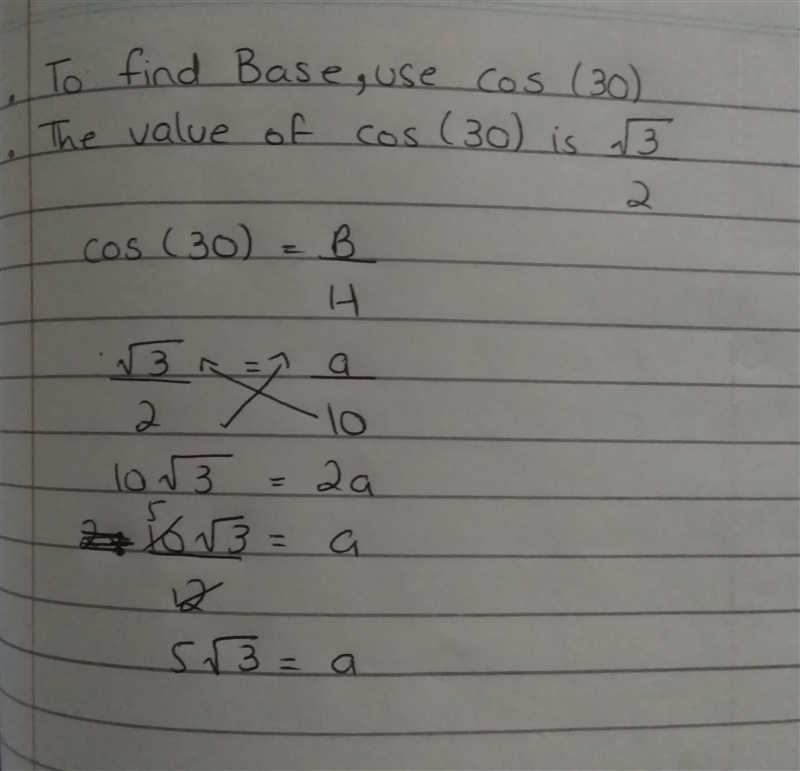 . To find Base, use cos (30)
. The value of cos (30) is √3
2
cos (30) = B
H
√3 = a
2 10
10√3 = 2a
5
10√3 = a
2
5√3 = a